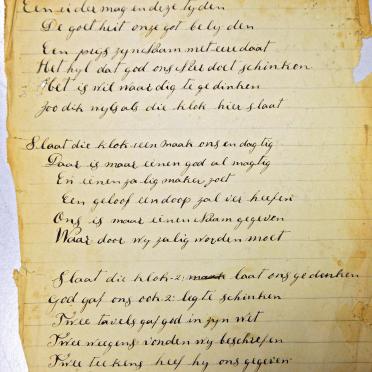 Een ieder mag en deze tyden
De goet heit onze got bely den
Een prys zyne Naam met eere daat
Het hyl dat god ons Heer doet schinken
Het is wil waar dig te gedinken
Zoo dik wyls als die klok hier slaat
Slaat die klok een maak ons en dag tig
Daar is maar eenen god al magtig
En eenen za lig maker zoet
Een geloof een doop zal ver heefen
Ons is maar eenen Naam gegeven
Waar door wy zalig worden moet
Slaat die klok 2: laat ons gedenken
God gaf ons ook 2: legte schinken
Twee tavels gaf god in zyn wet
Twee weegens vonden wy beschrefen
Twee teekens heef hy ons gegeven